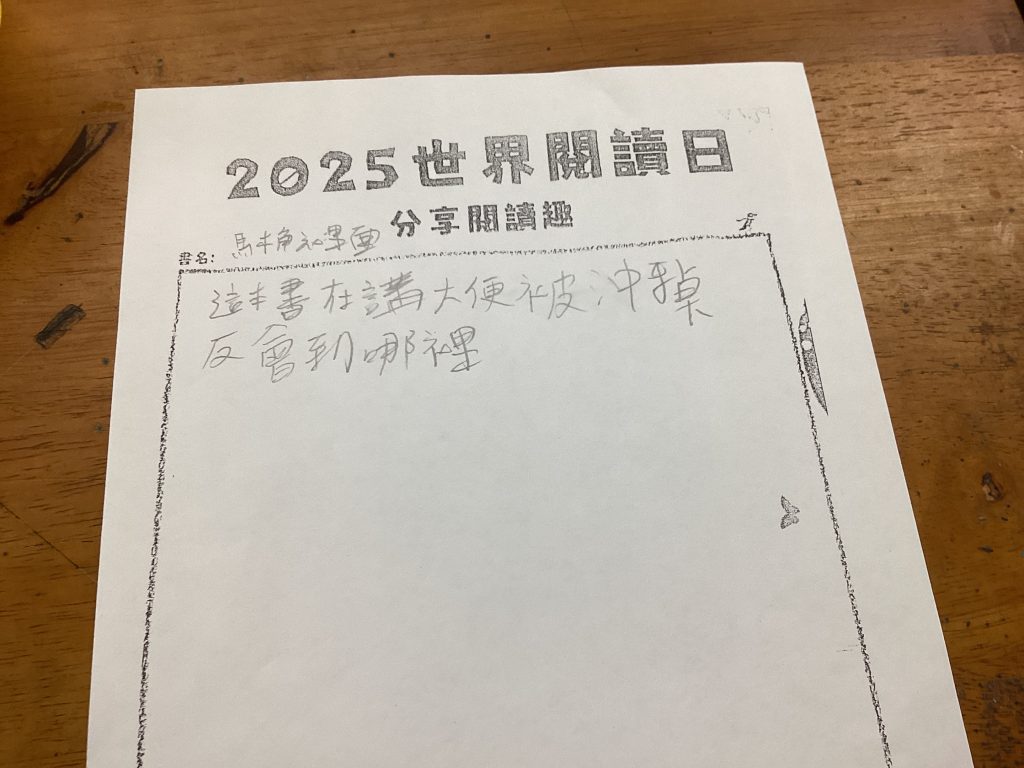 2025世界閱讀日
分享閱讀趣
書名:
這本書在講大便被沖掉
反會到哪裡